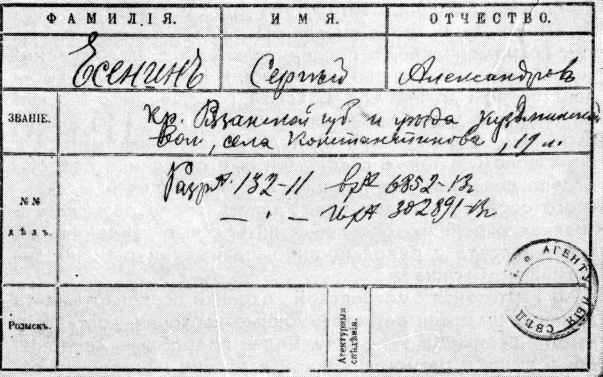 ФАМИЛІЯ. ИМЯ. ОТЧЕСТВО.
Есенинъ Сергѣй Александров
ЗВАНІЕ.
Кр. Рязанской губ. и уѣзда Кузьминской
Вол., села Константинова, 19 л.
№№
дѣлъ.
132-11 6852-13
302891-13
Розыскъ.
Агентурныя
свѣдѣнія.
АГЕНТУРНЫЯ СВѢД